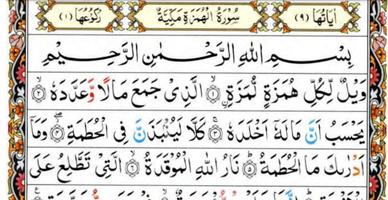 اٰيَاتُهَا (٩) سُوْرَةُ الْهُمَزَةِ مَكِّيَّةٌ رُكُوْعُهَا (١)
بِسْمِ اللّٰهِ الرَّحْمٰنِ الرَّحِيْمِ
وَيْلٌ لِّكُلِّ هُمَزَةٍ لُّمَزَةٍ ۙ﴿١﴾ الَّذِىْ جَمَعَ مَالًا وَّعَدَّدَهٗ ۙ﴿٢﴾
يَحْسَبُ اَنَّ مَالَهٗۤ اَخْلَدَهٗ ۚ﴿٣﴾ كَلَّا لَيُنْۢبَذَنَّ فِى الْحُطَمَةِ ۖ﴿٤﴾ وَمَاۤ
اَدْرٰٮكَ مَا الْحُطَمَةُ ؕ﴿٥﴾ نَارُ اللّٰهِ الْمُوْقَدَةُ ۙ﴿٦﴾ الَّتِىْ تَطَّلِعُ عَلَى